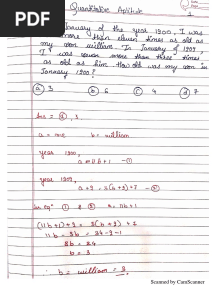 PDF
Quantitative Aptitude
1
January of the year 1900, I was
more than eleven times as old as
my son william. In January of 1909
I was seven more than three times
as old as him. How old was my son in
January 1900?
(a) 3 (b) 6 (c) 4 (d) 7
Ans = (a), 3.
a = me b = william
year 1900,
a = 11b + 1 - (1)
year 1909,
a + 9 = 3(b + 9) + 7 - (2)
(1) & (2) a = 11b + 1
(11b + 1) + 9 = 3(b + 9) + 7
8b = 24
b = 3
∴ b = william = 3.
Scanned by CamScanner